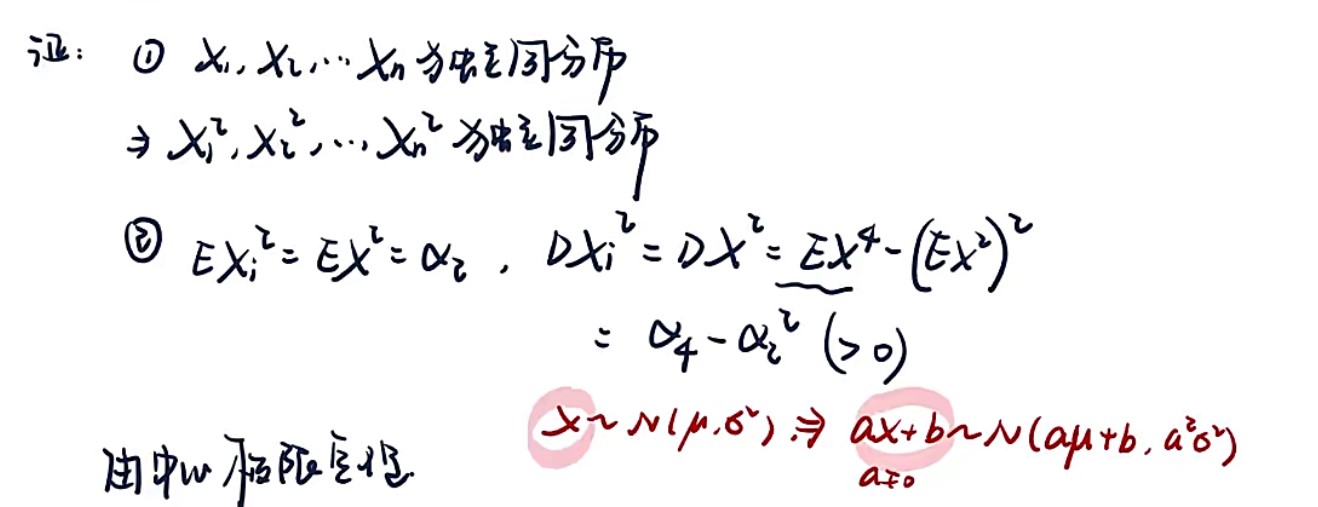 证: ① X₁, X₂, … Xₙ 为独立同分布
⇒ X₁², X₂², …, Xₙ² 为独立同分布
② EXᵢ² = EX² = α₂ , DXᵢ² = DX² = EX⁴ - (EX²)²
= α₄ - α₂² (>0)
X ~ N(μ, σ²) ⇒ aX+b ~ N(aμ+b, a²σ²)
a≠0
由中心极限定理.